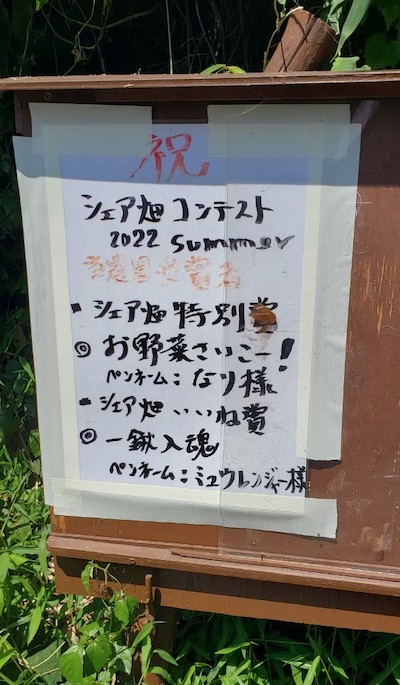 祝
シェア畑 コンテスト
2022 summer
当農園受賞者
・シェア畑 特別賞
◎ お野菜さいこー!
ペンネーム:なり様
・シェア畑 いいね賞
◎ 一鍬入魂
ペンネーム:ミュウレンジャー様